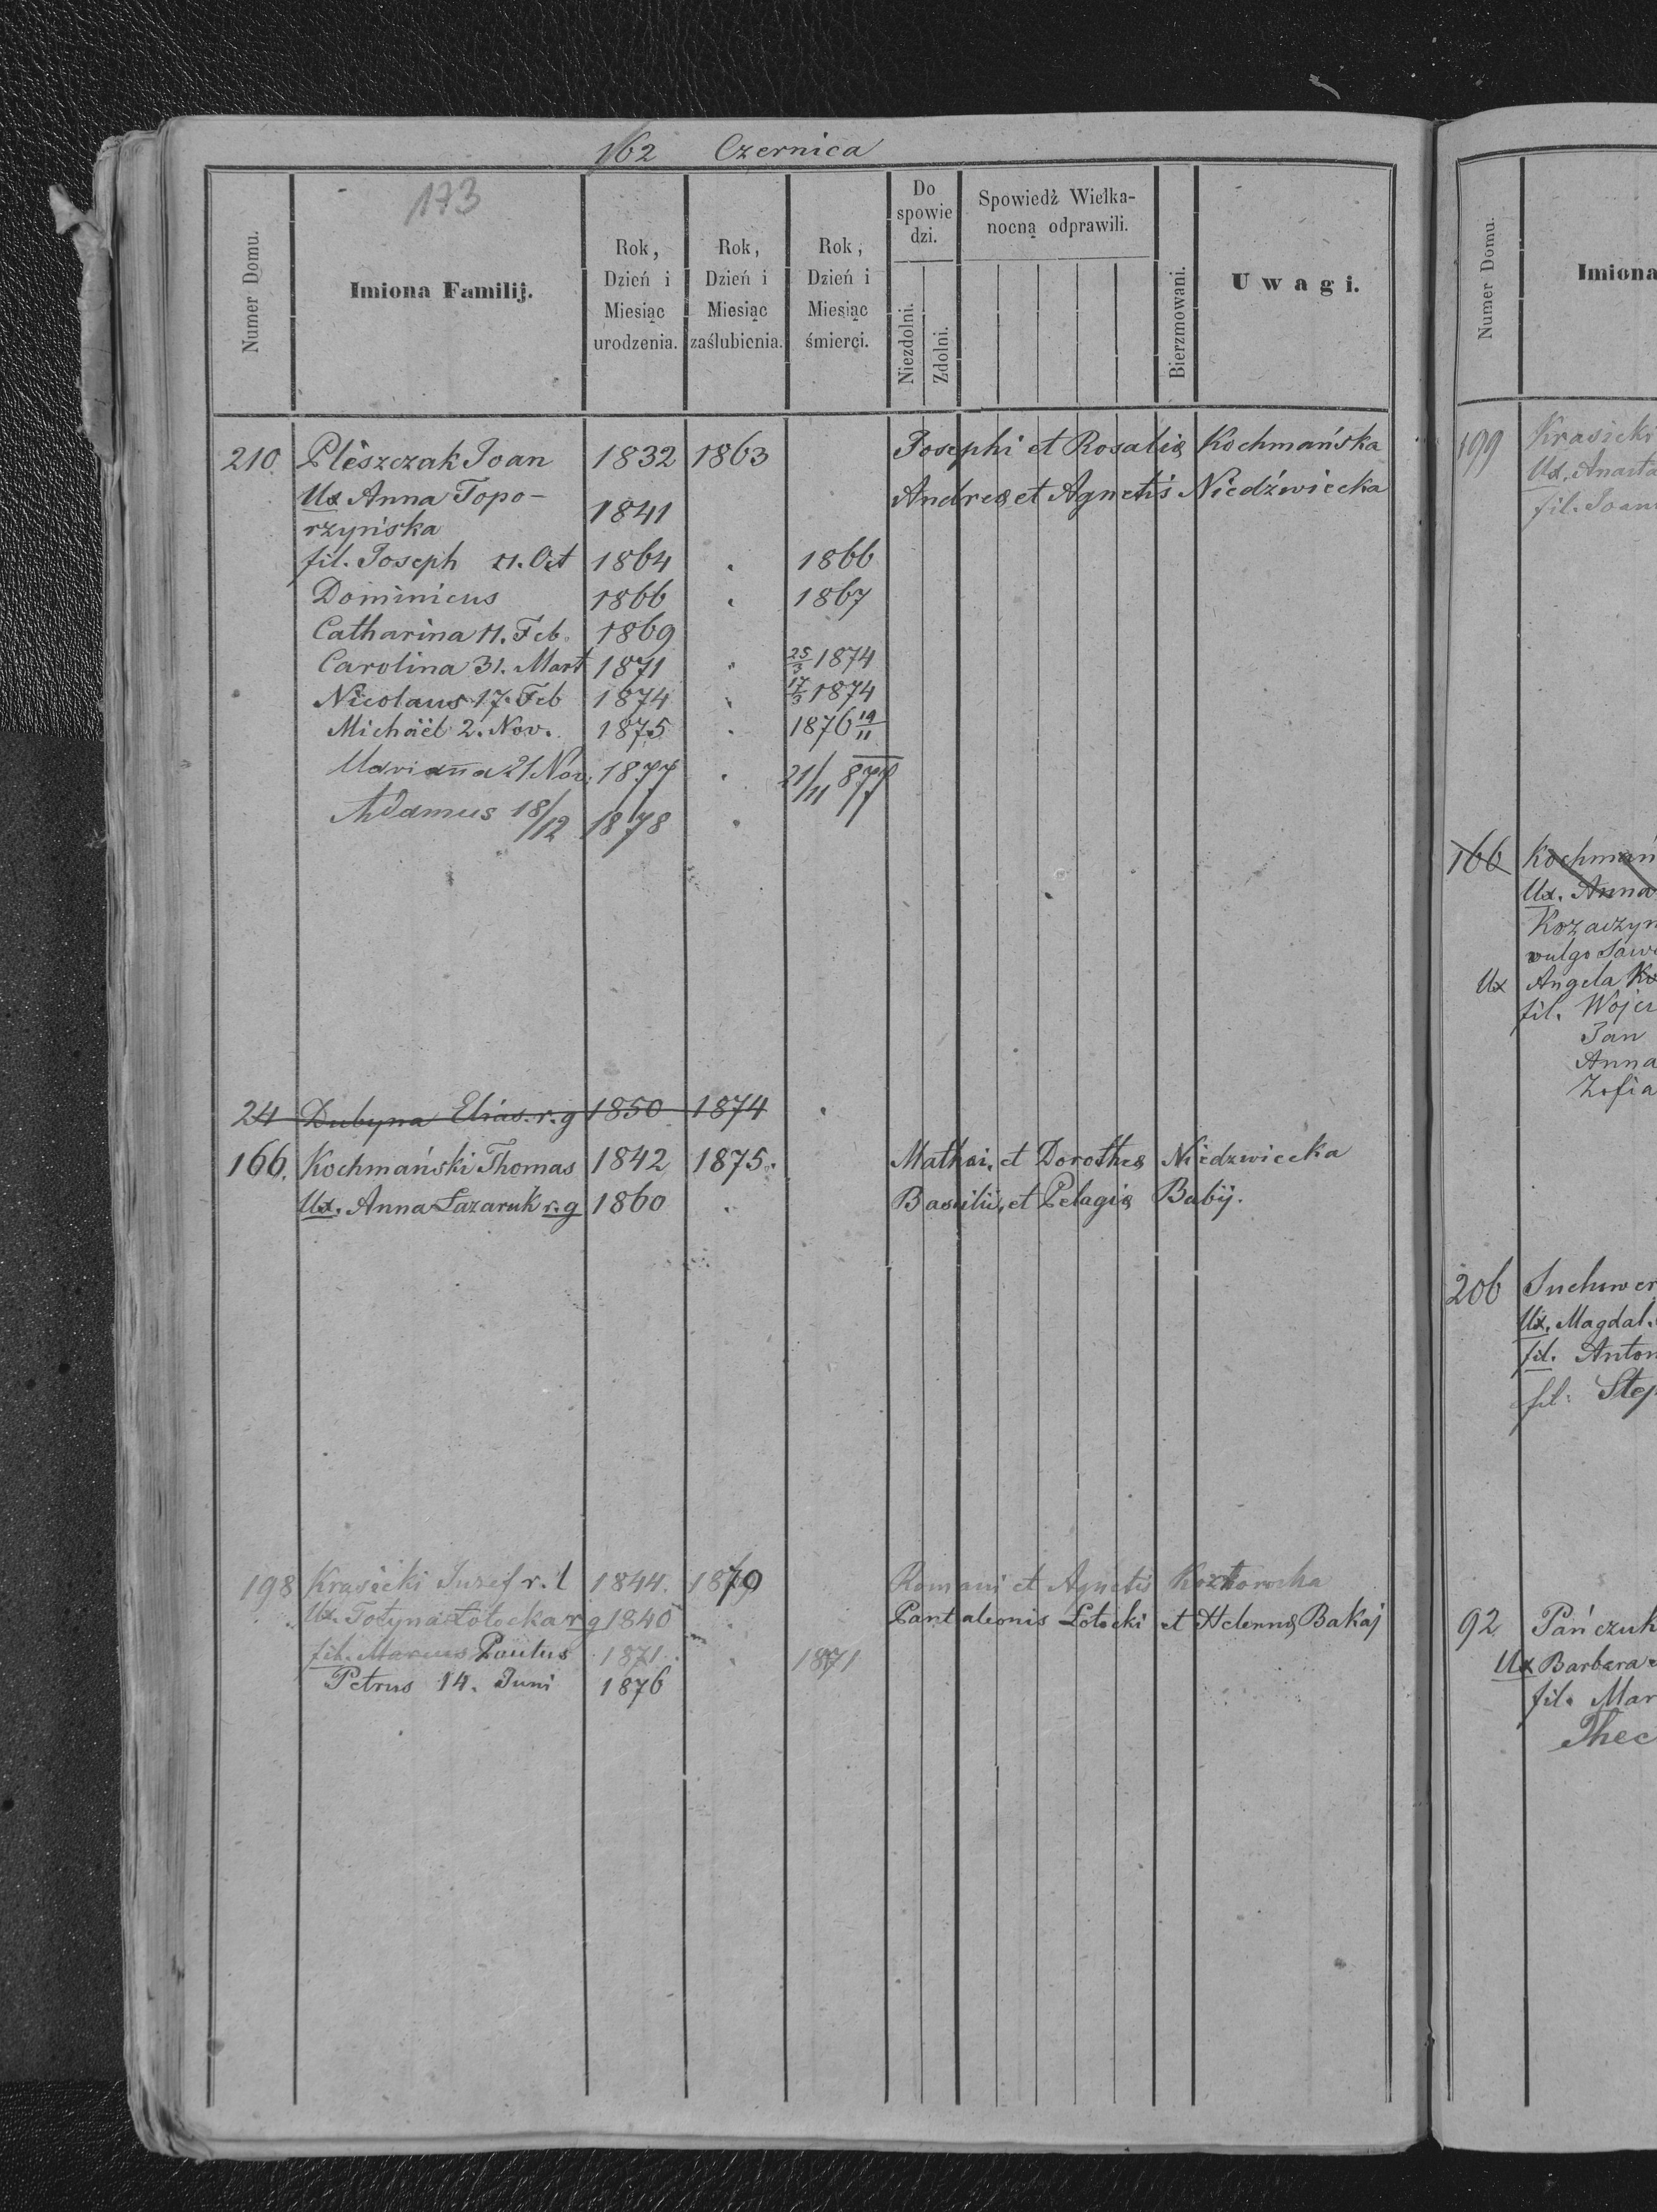 162 Czernica
173
Numer Domu.
Imiona Familij.
Rok, Dzień i Miesiąc urodzenia.
Rok, Dzień i Miesiąc zaślubienia.
Rok, Dzień i Miesiąc śmierci.
Do spowiedzi.
Niezdolni.
Zdolni.
Spowiedź Wielkanocną odprawili.
Bierzmowani.
Uwagi.
210 Pleszczak Joan 1832 1863 Josephi et Rosaliæ Kochmańska
Ux Anna Topo- 1841 Andreæ et Agnetis Niedźwiecka
rzyńska
fil. Joseph 11. Oct 1864 . 1866
Dominicus 1866 . 1867
Catharina 11. Feb. 1869
Carolina 31. Mart 1871 . 25/3 1874
Nicolaus 17. Feb 1874 . 17/3 1874
Michaël 2. Nov. 1875 . 1876 19/11
Marianna 21 Nov. 1877 . 21/11 877
Adamus 18/12 1878 .
24 Dubyna Elias. r. g 1850 1874 .
166. Kochmański Thomas 1842 1875. Mathæi, et Dorotheæ Niedzwiecka
Ux. Anna Łazaruk r. g 1860 . Basilii, et Pelagiæ Babij.
198 Krasicki Juzef r. l 1844. 1870 Romani et Agnetis
Ux. Totyna Łotocka r g 1840 . Pantaleonis Łotocki et Helennæ Bakaj
fil. Marcus Paulus 1871. . 1871
Petrus 14. Juni 1876
Numer Domu.
Imiona
199 Krasicki
Ux. Anasta
fil. Joan
166 Kochmań
Ux. Anna
Kozaczyn
vulgo Saw
Ux Angela Ko
fil. Wojc
Jan
Anna
Zofia
206 Suchwer
Ux. Magdal.
fil. Anton
fil. Step
92 Pańczuk
Ux Barbara
fil. Mar
Thec